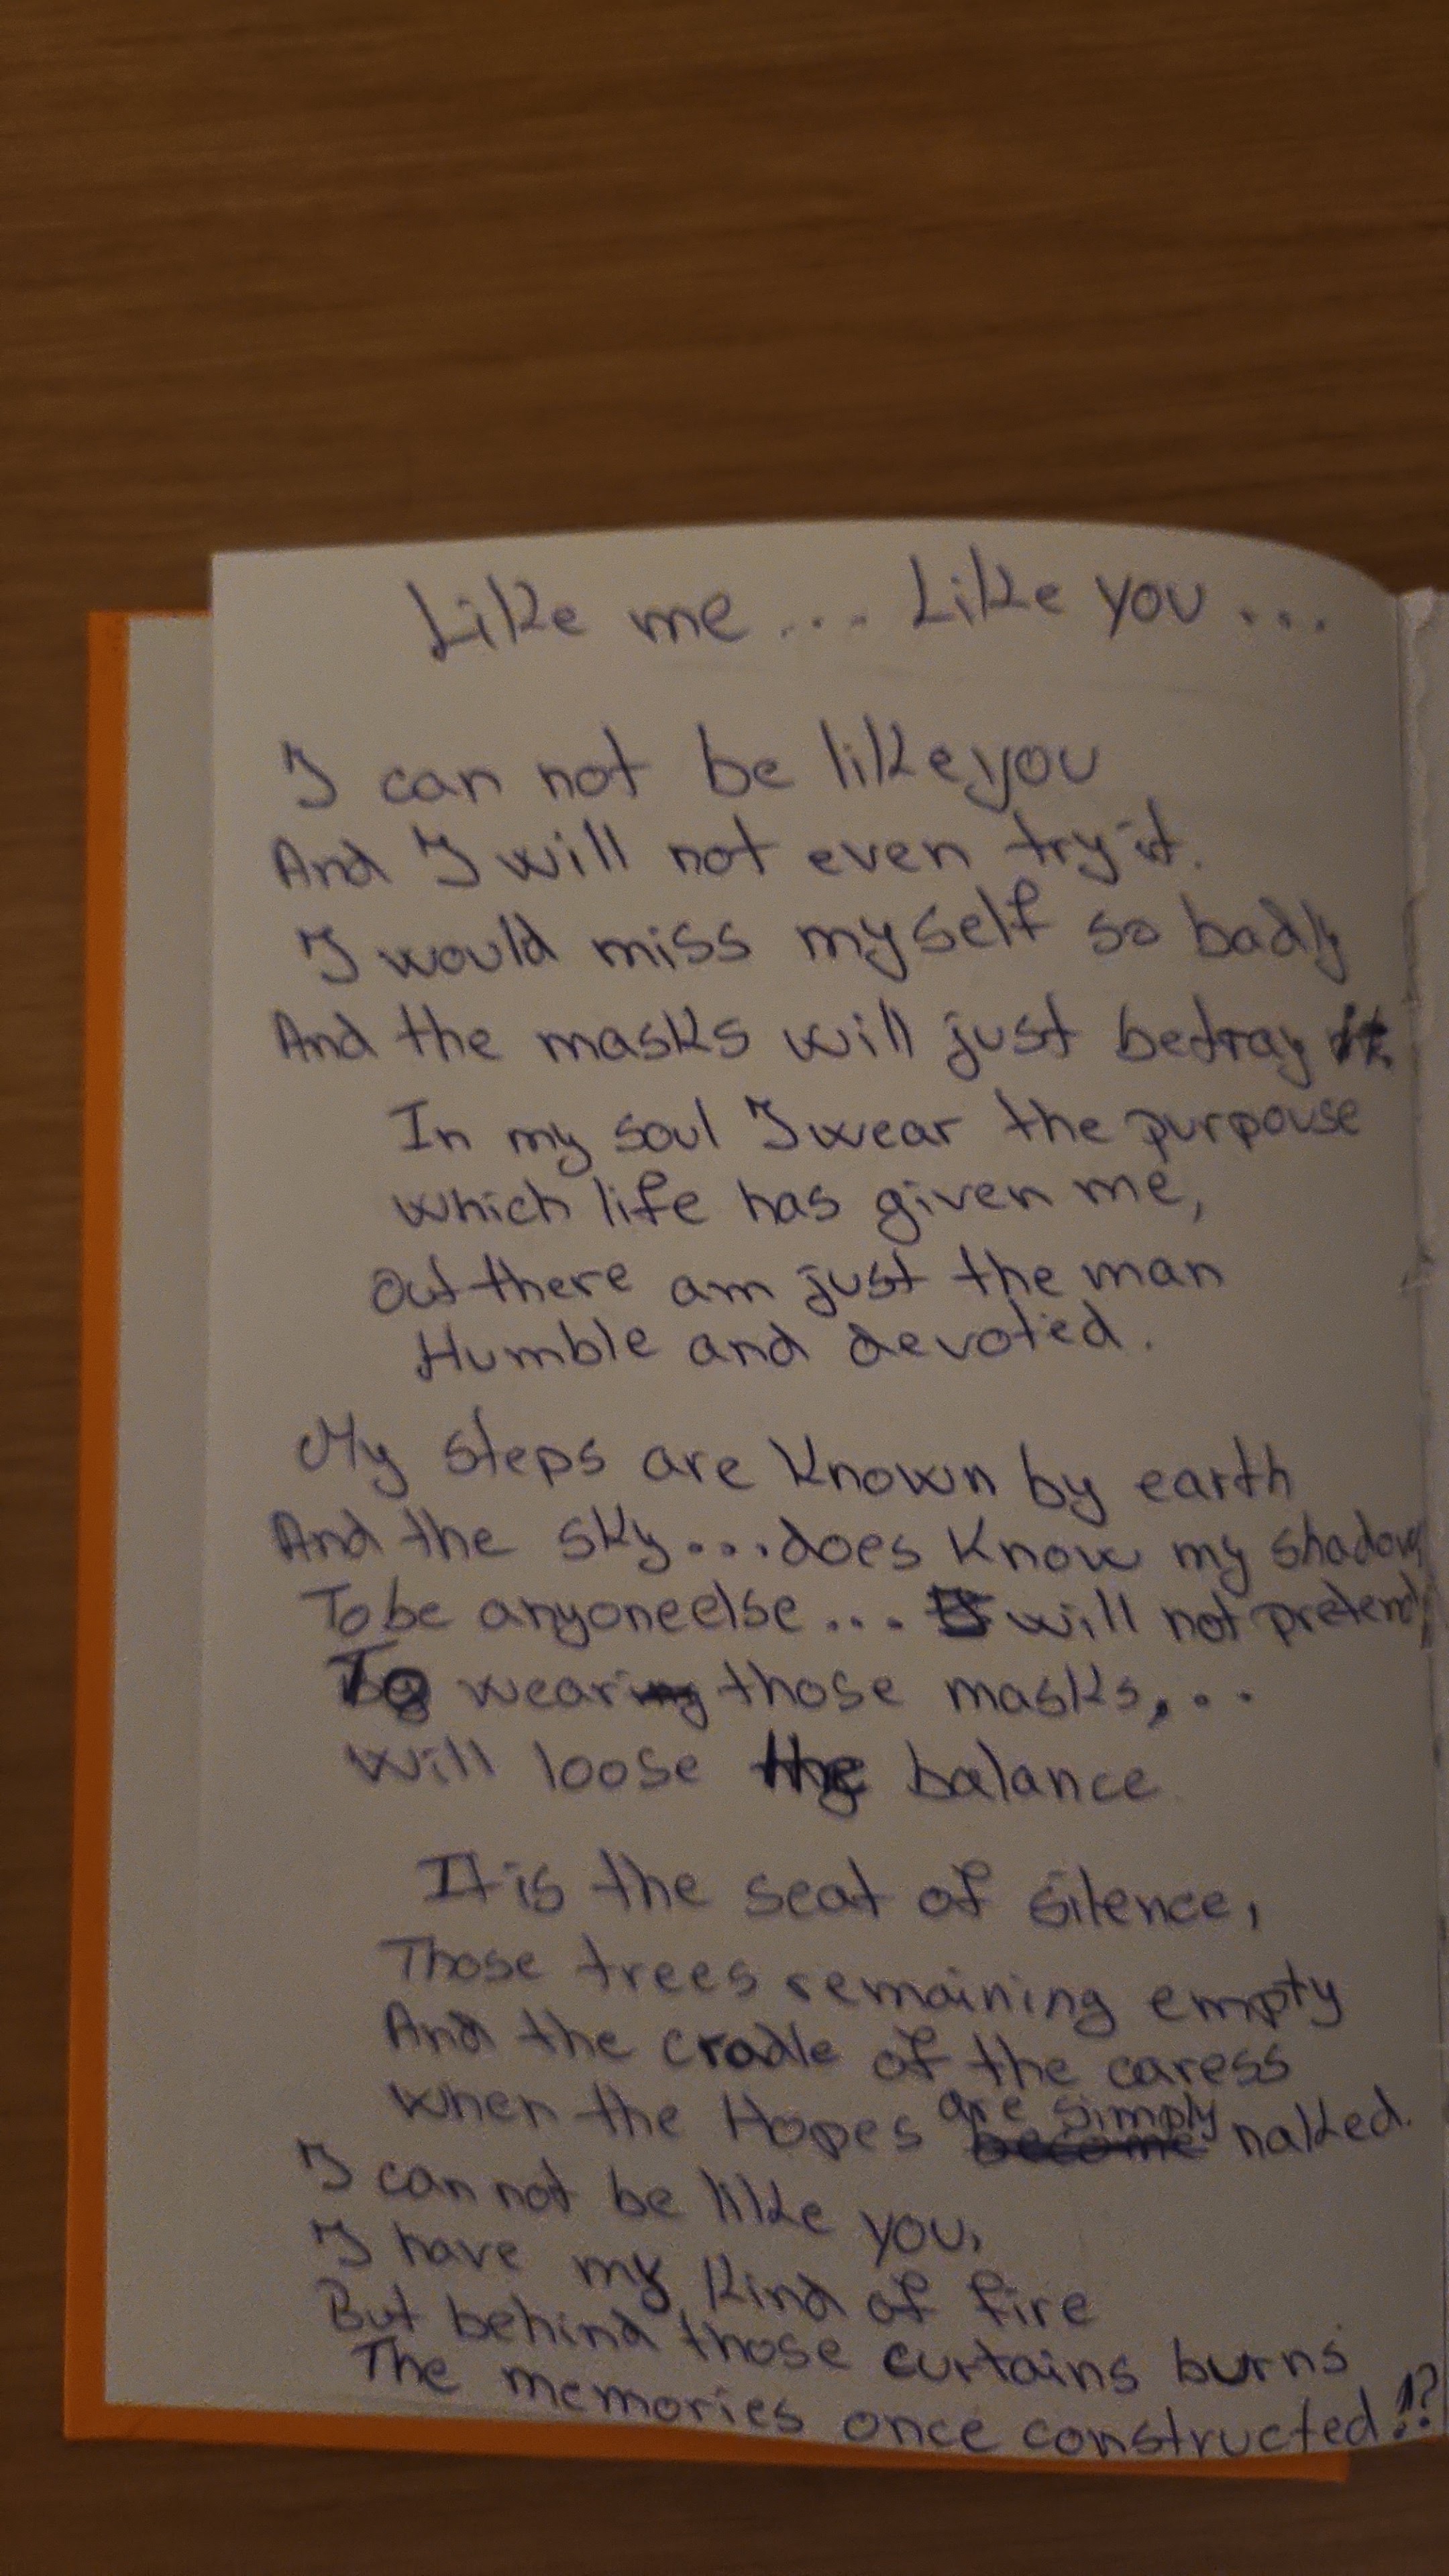 Like me ... Like you ...
I can not be like you
And I will not even try it.
I would miss myself so badly
And the masks will just betray it.
In my soul I wear the purpouse
which life has given me,
out there am just the man
Humble and devoted.
My steps are known by earth
And the sky....does know my shadow,
To be anyone else ... I will not pretend
To wear those masks,..
will loose the balance
It is the seat of silence,
Those trees remaining empty
And the cradle of the caress
when the Hopes are simply naked.
I can not be like you,
I have my kind of fire
But behind those curtains burns
The memories once constructed!?